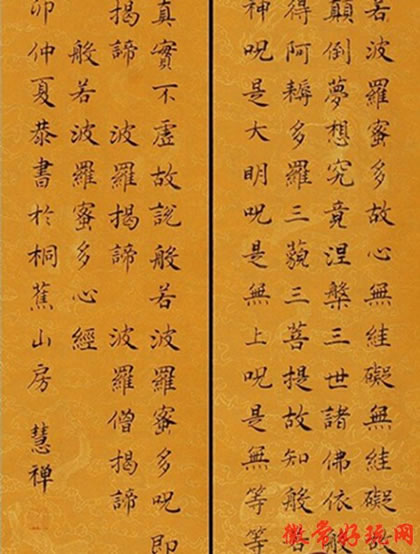 若波羅蜜多故心無絓礙無絓礙故
顛倒夢想究竟涅槃三世諸佛依般
得阿耨多羅三藐三菩提故知般若
神呪是大明呪是無上呪是無等等
真實不虛故說般若波羅蜜多呪即
揭諦 波羅揭諦 波羅僧揭諦
般若波羅蜜多心經
卯仲夏恭書於桐蕉山房 慧禪
好玩网